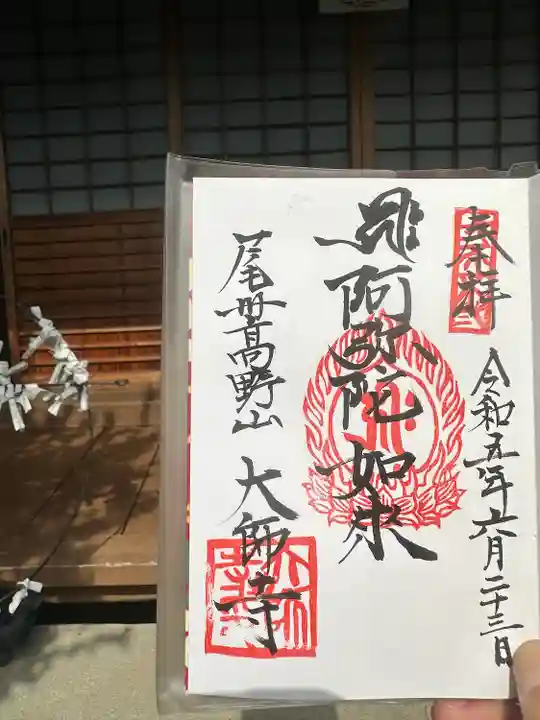 奉拝
令和五年六月二十三日
阿弥陀如来
尾世高野山
大師寺